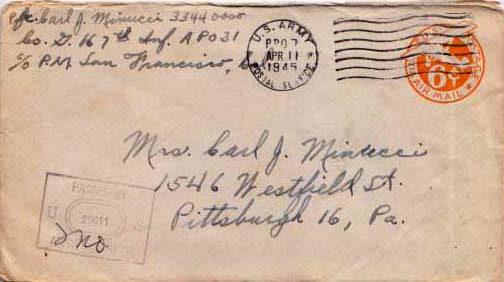 Pfc. Carl J. Minucci 3344
Co. G. 167th Inf. APO 31
c/o P.M. San Francisco,
U.S. ARMY
APR 11
1945
POSTAL SERVICE
U.S. POSTAGE
6¢
AIR MAIL
Mrs. Carl J. Minucci
1546 Westfield St.
Pittsburgh 16, Pa.
PASSED BY
U S